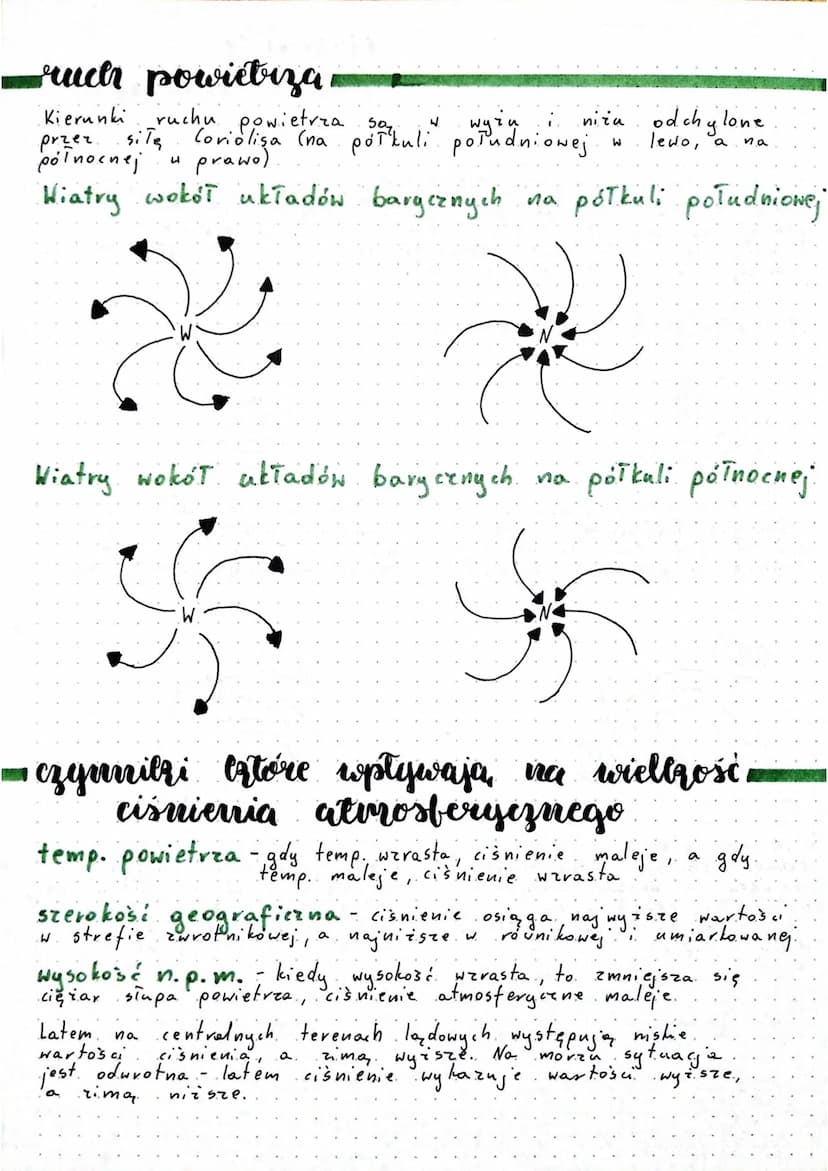 ruch powietrza
Kierunki ruchu powietrza są w wyżu i niżu odchylone
przez siłę Coriolisa (na półkuli południowej w lewo, a na
północnej w prawo)
Wiatry wokół układów barycznych na półkuli południowej
W N
Wiatry wokół układów barycznych na półkuli północnej
W N
czynniki które wpływają na wielkość
ciśnienia atmosferycznego
temp. powietrza - gdy temp. wzrasta, ciśnienie maleje, a gdy
temp. maleje, ciśnienie wzrasta
szerokość geograficzna - ciśnienie osiąga najwyższe wartości
w strefie zwrotnikowej, a najniższe w równikowej i umiarkowanej.
wysokość n.p.m. - kiedy wysokość wzrasta, to zmniejsza się
ciężar słupa powietrza, ciśnienie atmosferyczne maleje.
Latem na centralnych terenach lądowych występują niskie
wartości ciśnienia, a zimą wyższe. Na morzu sytuacja
jest odwrotna - latem ciśnienie wykazuje wartości wyższe,
a zimą niższe.